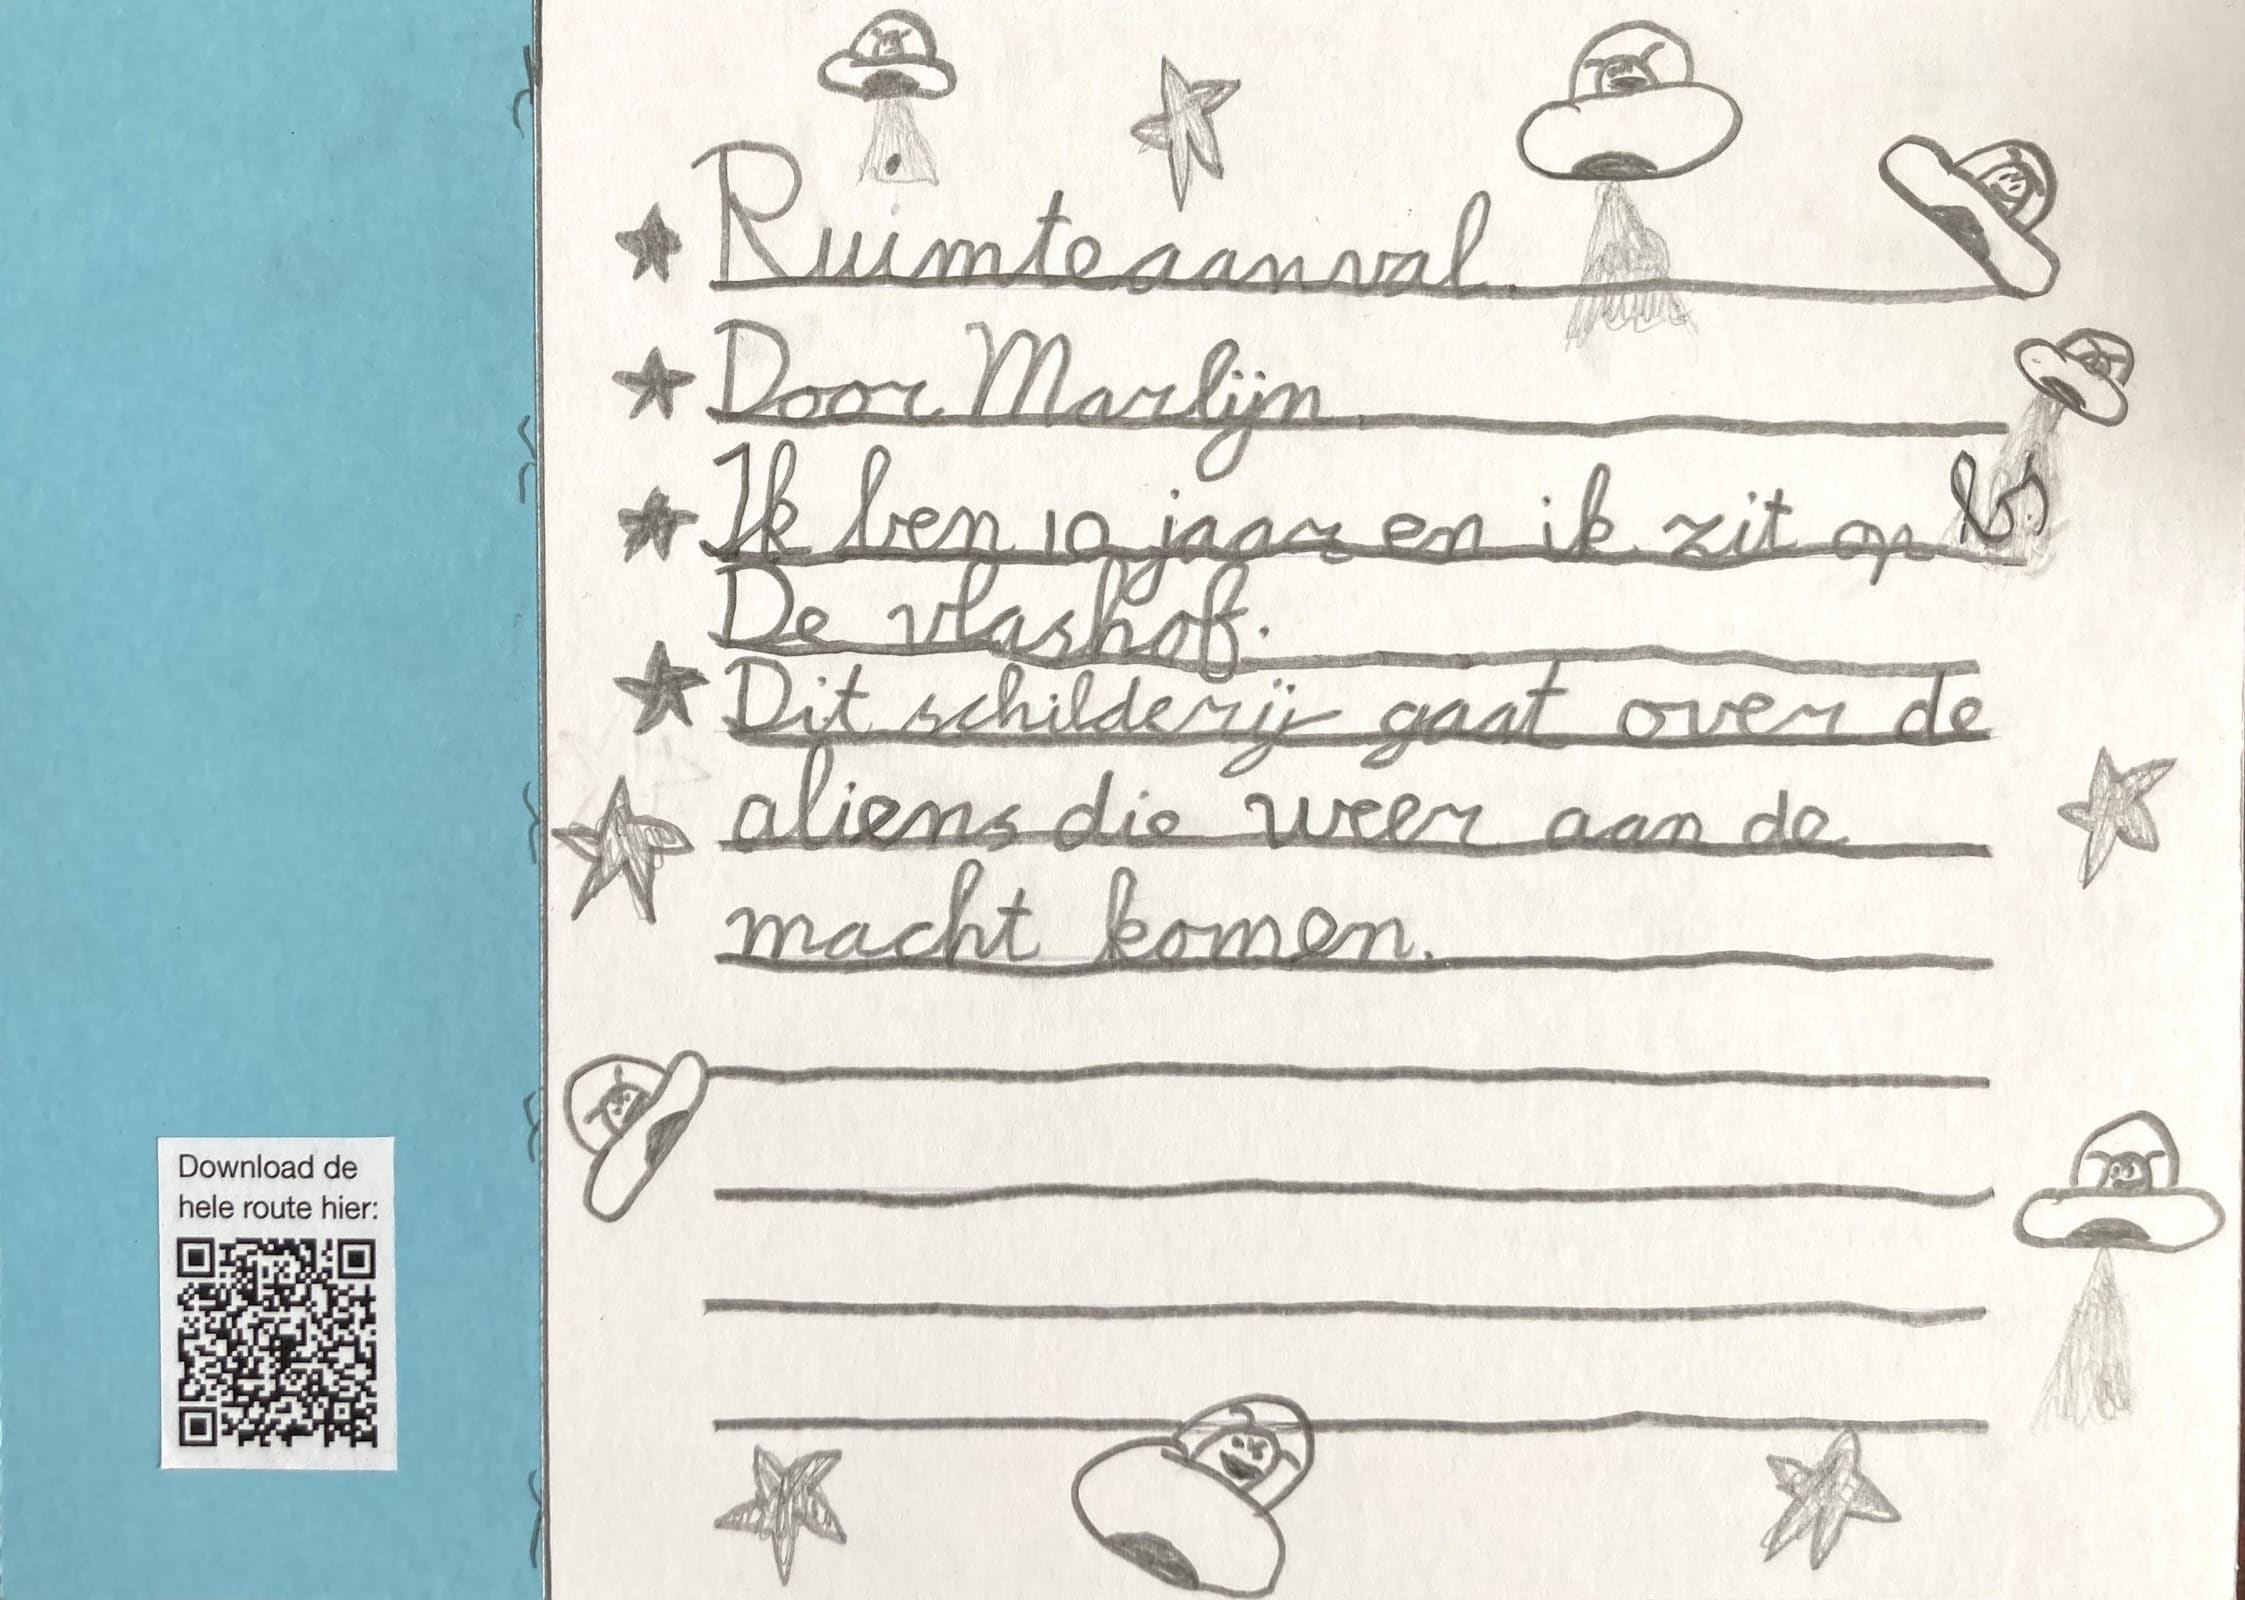 Ruimteaanval.
Door Marlijn
Ik ben 10 jaar en ik zit op bs
De vlashof.
Dit schilderij gaat over de
aliens die weer aan de
macht komen.
Download de
hele route hier: